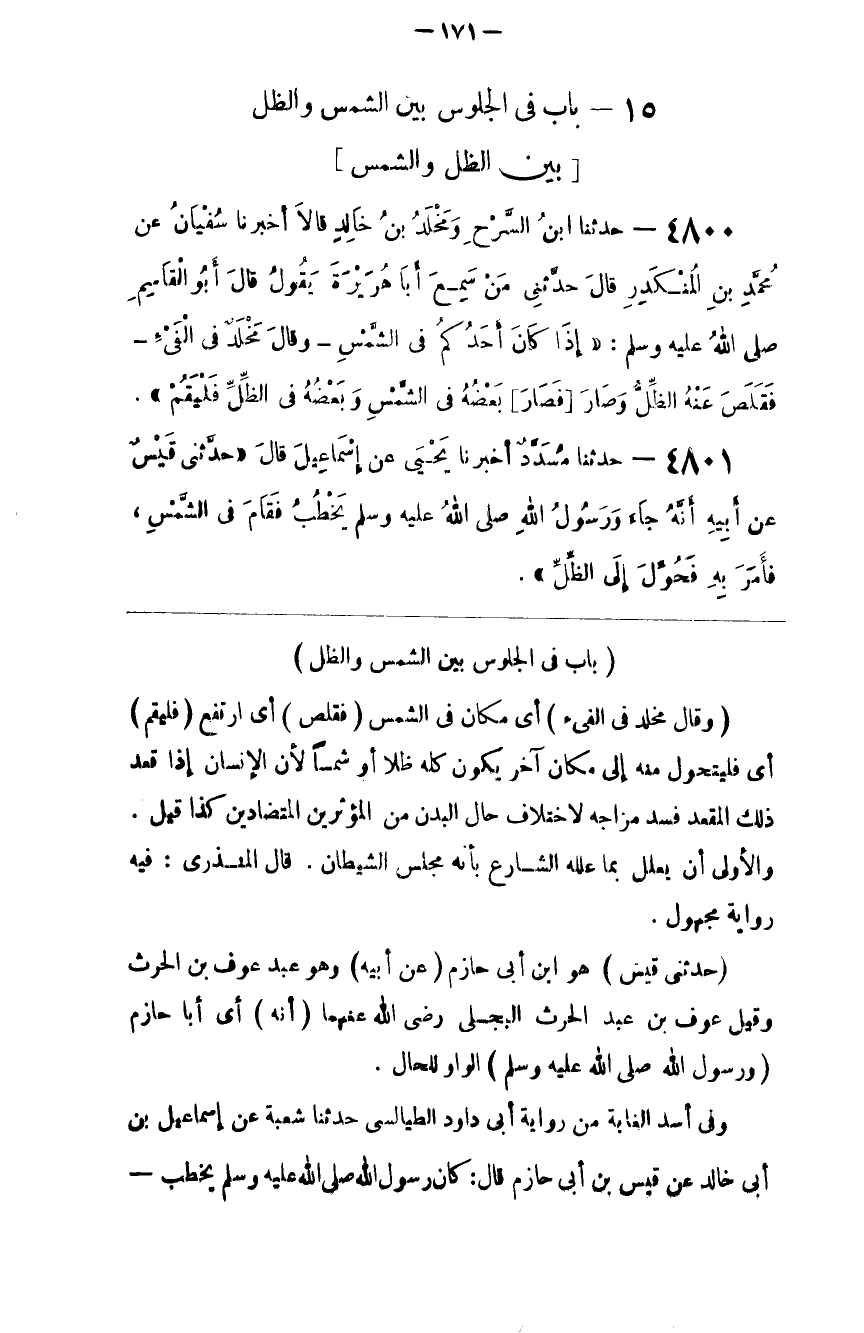 — ١٧١ —
١٥ — باب فى الجلوس بين الشمس والظل
[ بين الظل والشمس ]
٤٨٠٠ — حدثنا ابنُ السَّرْحِ وَمَخْلَدُ بنُ خَالِدٍ قالاَ أخبرنا سُفْيَانُ عن
مُحمَّدِ بنِ الْمُنْكَدِرِ قالَ حدَّثنِى مَنْ سَمِعَ أَبَا هُرَيْرَةَ يَقُولُ قالَ أَبُو الْقَاسِمِ
صلى اللهُ عليه وسلم : « إذَا كَانَ أَحَدُكُمْ فى الشَّمْسِ - وقالَ مَخْلَدٌ فى الْفَىْءِ -
فَقَلَصَ عَنْهُ الظِّلُّ وَصَارَ [فَصَارَ] بَعْضُهُ فى الشَّمْسِ وَبَعْضُهُ فى الظِّلِّ فَلْيَقُمْ » .
٤٨٠١ — حدثنا مُسَدَّدٌ أخبرنا يَحْيَى عن إسْمَاعِيلَ قالَ «حدَّثنى قَيْسٌ
عن أَبِيهِ أَنَّهُ جاَء وَرَسُولُ اللهِ صلى اللهُ عليه وسلم يَخْطُبُ فَقَامَ فى الشَّمْسِ ،
فأَمَرَ بِهِ فَحُوِّلَ إلَى الظِّلِّ » .
( باب فى الجلوس بين الشمس والظل )
( وقال مخلد فى الفىء ) أى مكان فى الشمس ( فقلص ) أى ارتفع ( فليقم )
أى فليتحول منه إلى مكان آخر يكون كله ظلا أو شمساً لأن الإنسان إذا قعد
ذلك المقعد فسد مزاجه لاختلاف حال البدن من المؤثرين المتضادين كذا قيل .
والأولى أن يعلل بما علله الشارع بأنه مجلس الشيطان . قال المنذرى : فيه
رواية مجهول .
(حدثنى قيس ) هو ابن أبى حازم ( عن أبيه) وهو عبد عوف بن الحرث
وقيل عوف بن عبد الحرث البجلى رضى الله عنهما ( أنه ) أى أبا حازم
( ورسول الله صلى الله عليه وسلم ) الواو للحال .
وفى أسد الغابة من رواية أبى داود الطيالسى حدثنا شعبة عن إسماعيل بن
أبى خالد عن قيس بن أبى حازم قال: كان رسول الله صلى الله عليه وسلم يخطب —